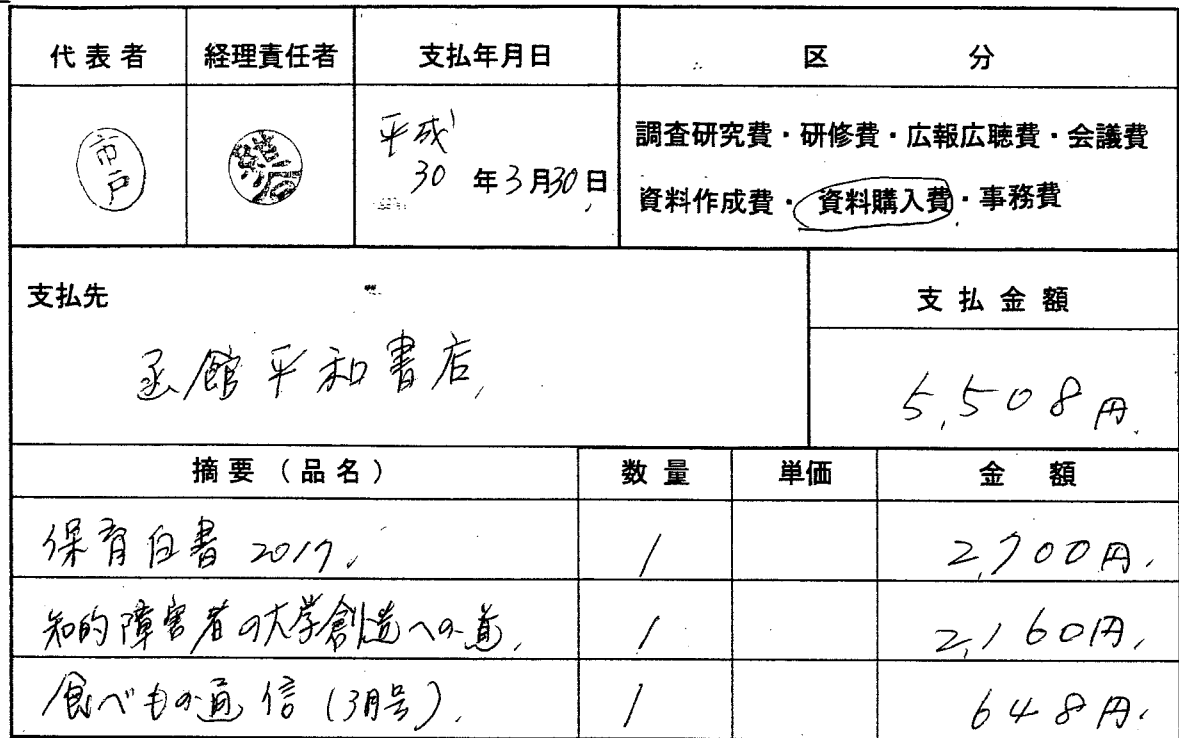 代表者 経理責任者 支払年月日 区 分
市戸
平成
30 年 3月30日
調査研究費・研修費・広報広聴費・会議費
資料作成費・資料購入費・事務費
支払先
支払金額
函館平和書店
5,508円
摘要(品名) 数量 単価 金 額
保育白書 2017 1 2,700円
知的障害者の大学創造への道 1 2,160円
食べもの通信(3月号) 1 648円